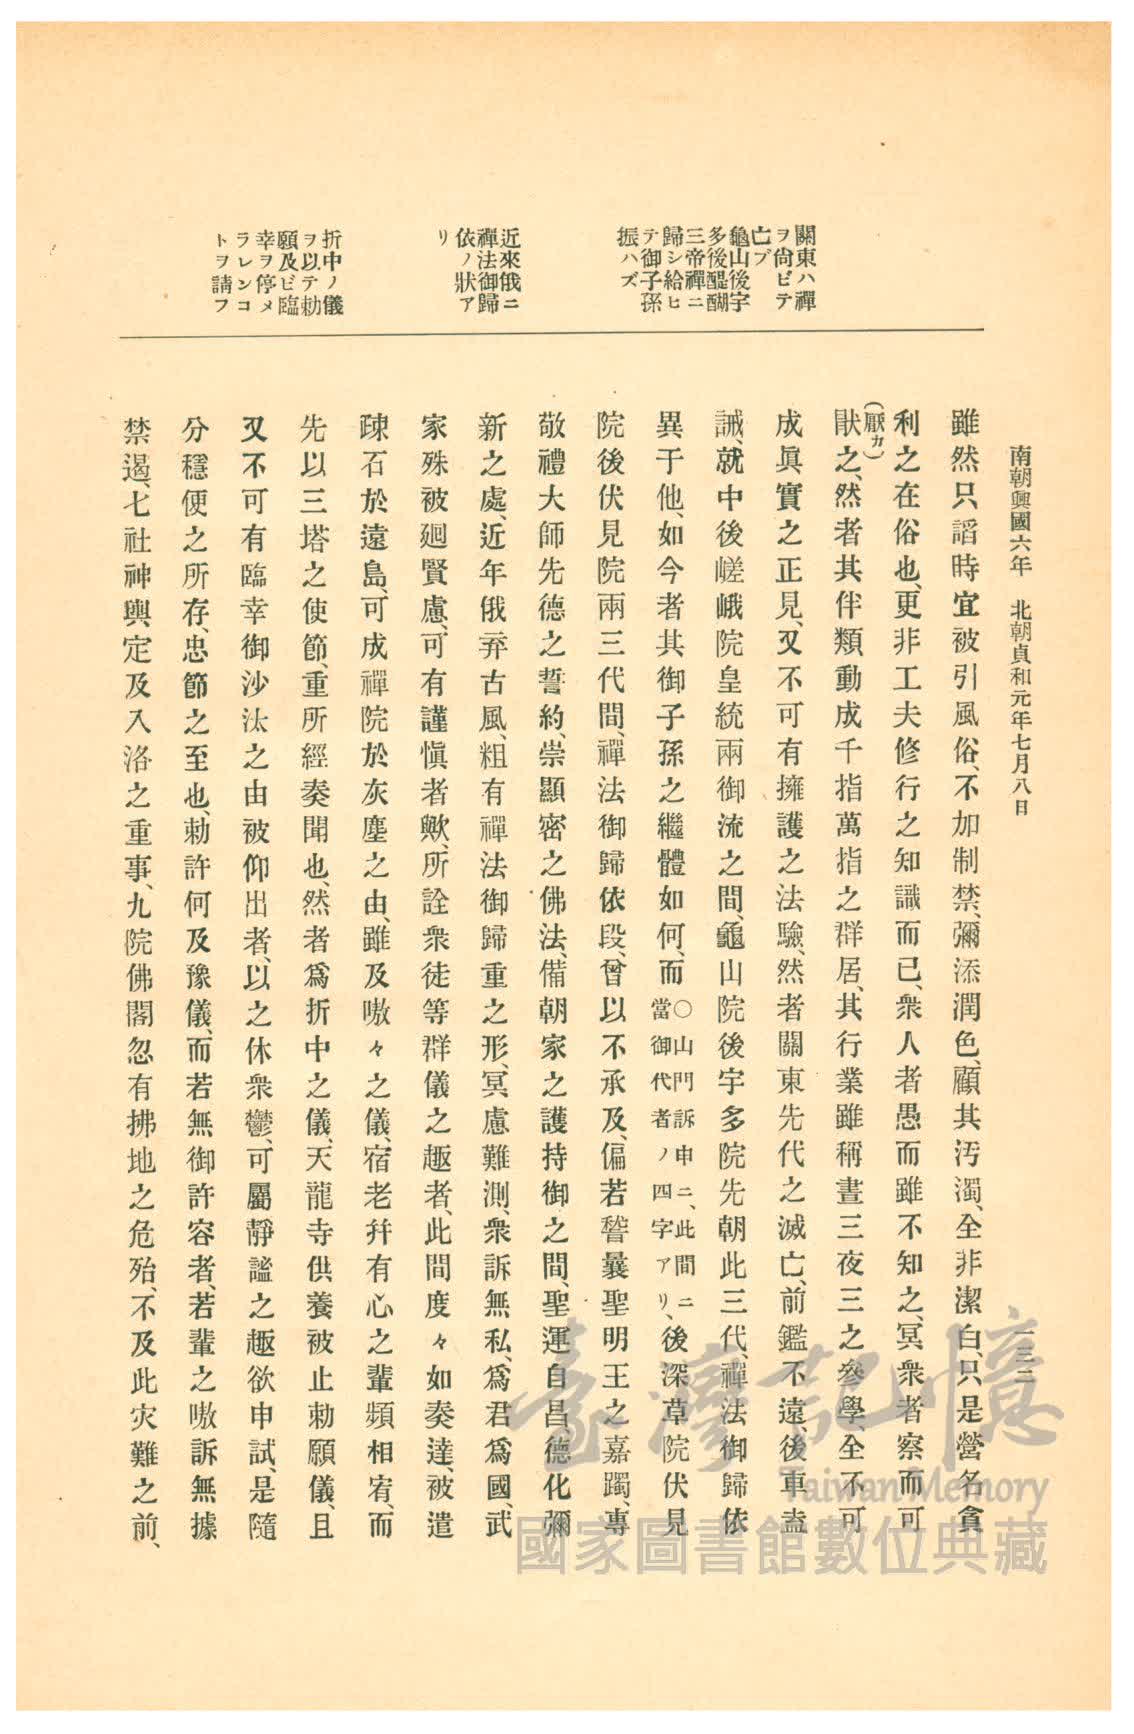 南朝興國六年　北朝貞和元年七月八日
一三二
關東ハ禪
ヲ尙ビテ
亡ブ
龜山後宇
多後醍醐
三帝禪ニ
歸シ給ヒ
テ御子孫
振ハズ
近來俄ニ
禪法御歸
依ノ狀ア
リ
折中ノ儀
ヲ以テ勅
願及ビ臨
幸ヲ停メ
ラレンコ
トヲ請フ
雖然只謟時宜被引風俗、不加制禁、彌添潤色、顧其汚濁、全非潔白、只是營名貪
利之在俗也、更非工夫修行之知識而已、衆人者愚而雖不知之、冥衆者察而可
(厭カ)
猒之、然者其伴類動成千指萬指之群居、其行業雖稱晝三夜三之參學、全不可
成眞實之正見、又不可有擁護之法驗、然者關東先代之滅亡、前鑑不遠、後車盍
誡、就中後嵯峨院皇統兩御流之間、龜山院後宇多院先朝此三代、禪法御歸依
異于他、如今者其御子孫之繼體如何、而○山門訴申ニ、此間ニ當御代者ノ四字アリ、後深草院伏見
院後伏見院兩三代間、禪法御歸依段、曾以不承及、偏若訾曩聖明王之嘉躅、專
敬禮大師先德之誓約、崇顯密之佛法、備朝家之護持御之間、聖運自昌德化彌
新之處、近年俄弃古風、粗有禪法御歸重之形、冥慮難測、衆訴無私、爲君爲國、武
家殊被廻賢慮、可有謹愼者歟、所詮衆徒等群儀之趣者、此間度々如奏達、被遣
疎石於遠島、可成禪院於灰塵之由、雖及嗷々之儀、宿老幷有心之輩頻相宥、而
先以三塔之使節、重所經奏聞也、然者爲折中之儀、天龍寺供養被止勅願儀、且
又不可有臨幸御沙汰之由被仰出者、以之休衆鬱、可屬靜謐之趣欲申試、是隨
分穩便之所存、忠節之至也、勅許何及豫儀、而若無御許容者、若輩之嗷訴無據
禁遏、七社神輿定及入洛之重事、九院佛閣忽有拂地之危殆、不及此灾難之前、
臺灣記憶
Taiwan Memory
國家圖書館數位典藏